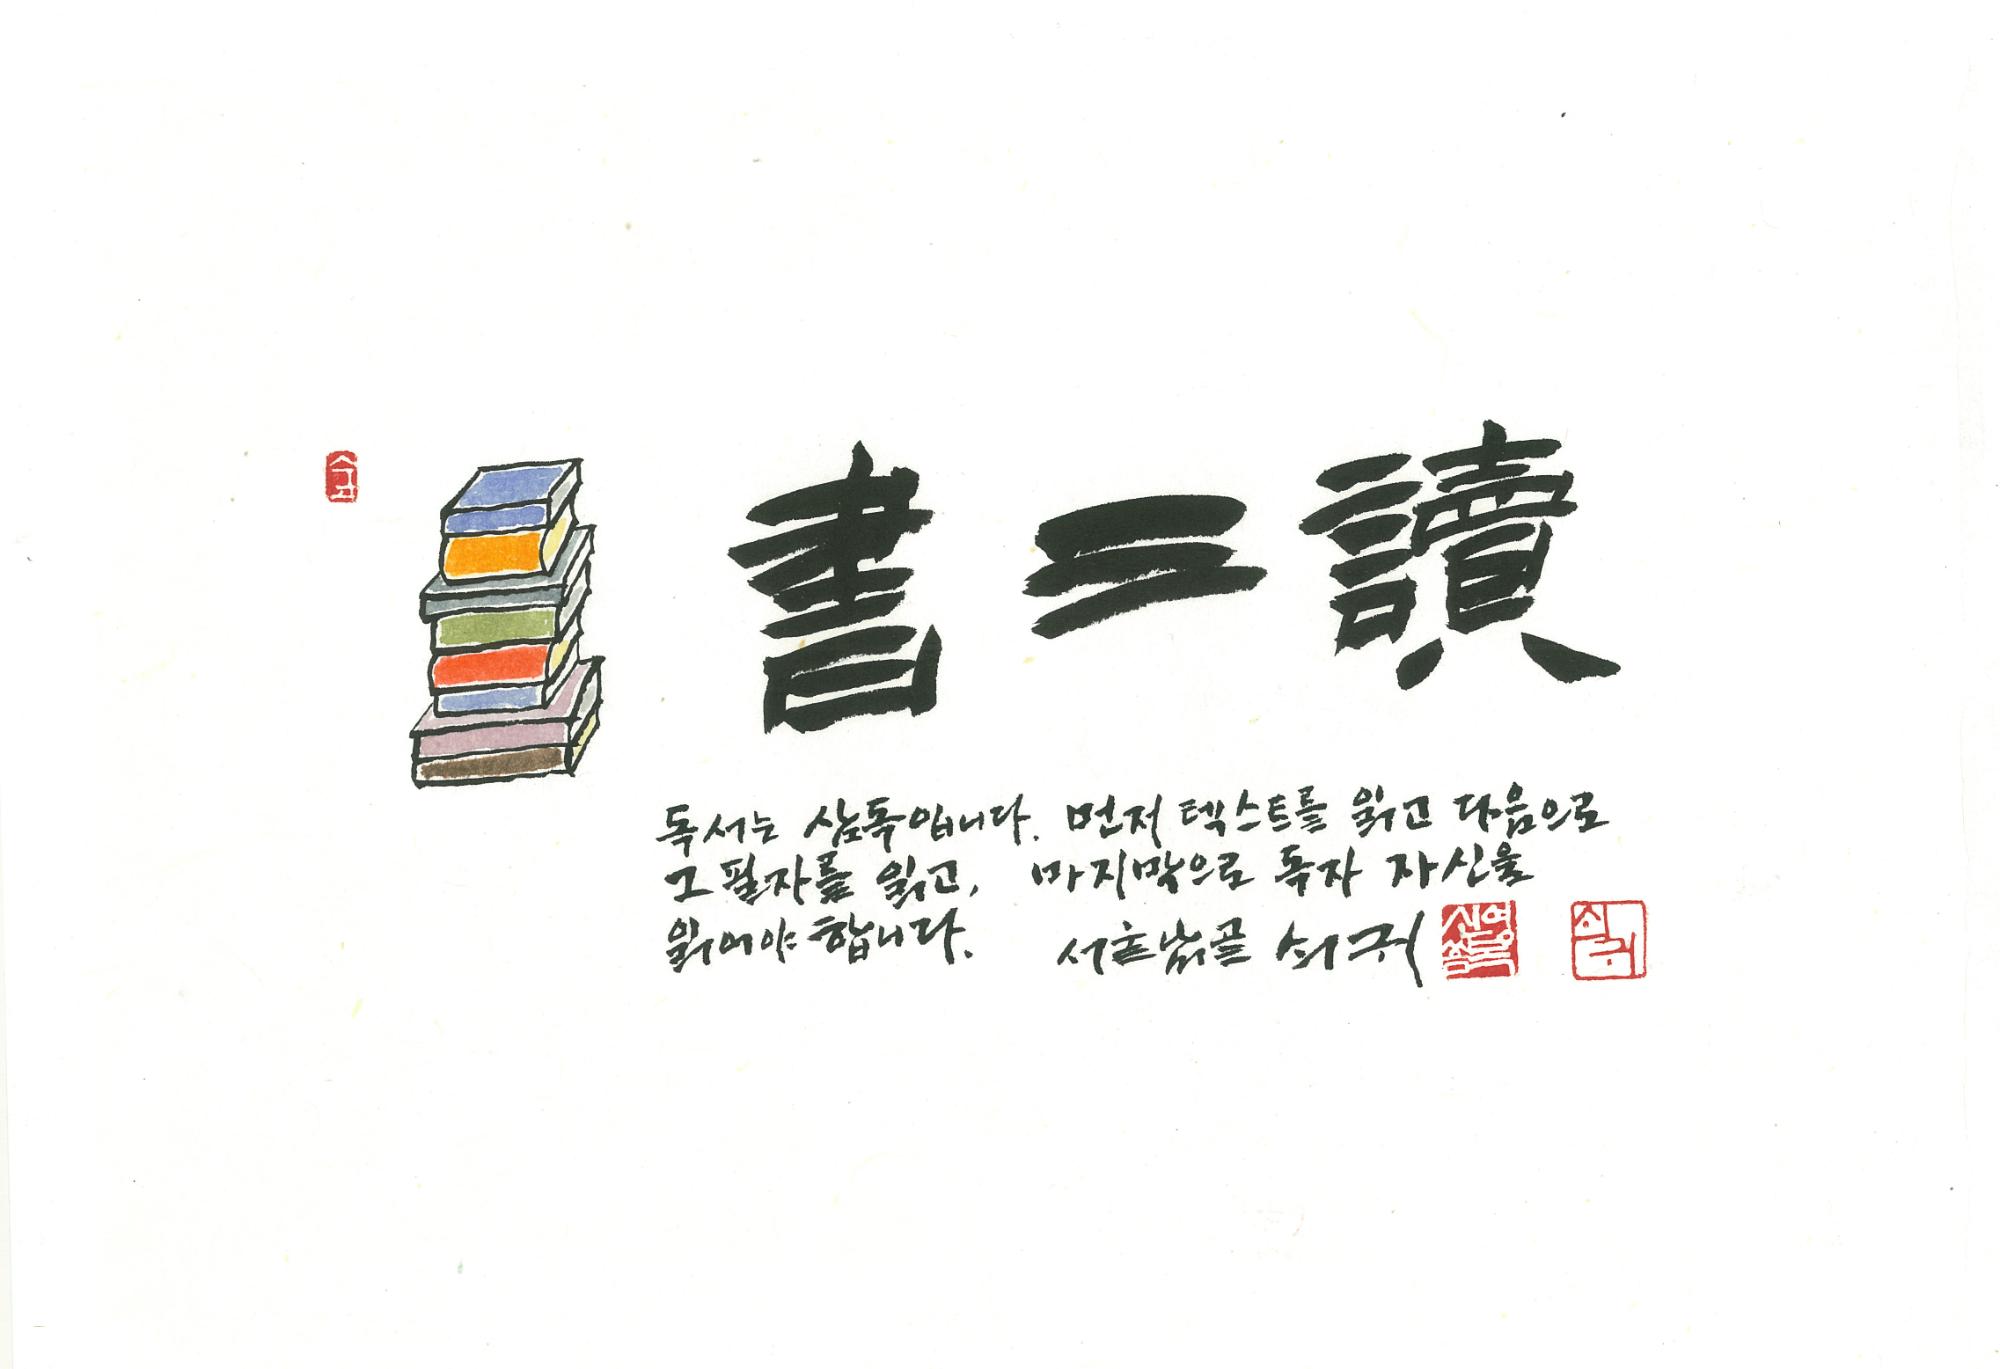 書三讀
독서는 삼독입니다. 먼저 텍스트를 읽고 다음으로
그 필자를 읽고, 마지막으로 독자 자신을
읽어야 합니다. 쇠귀
신영복
쇠귀